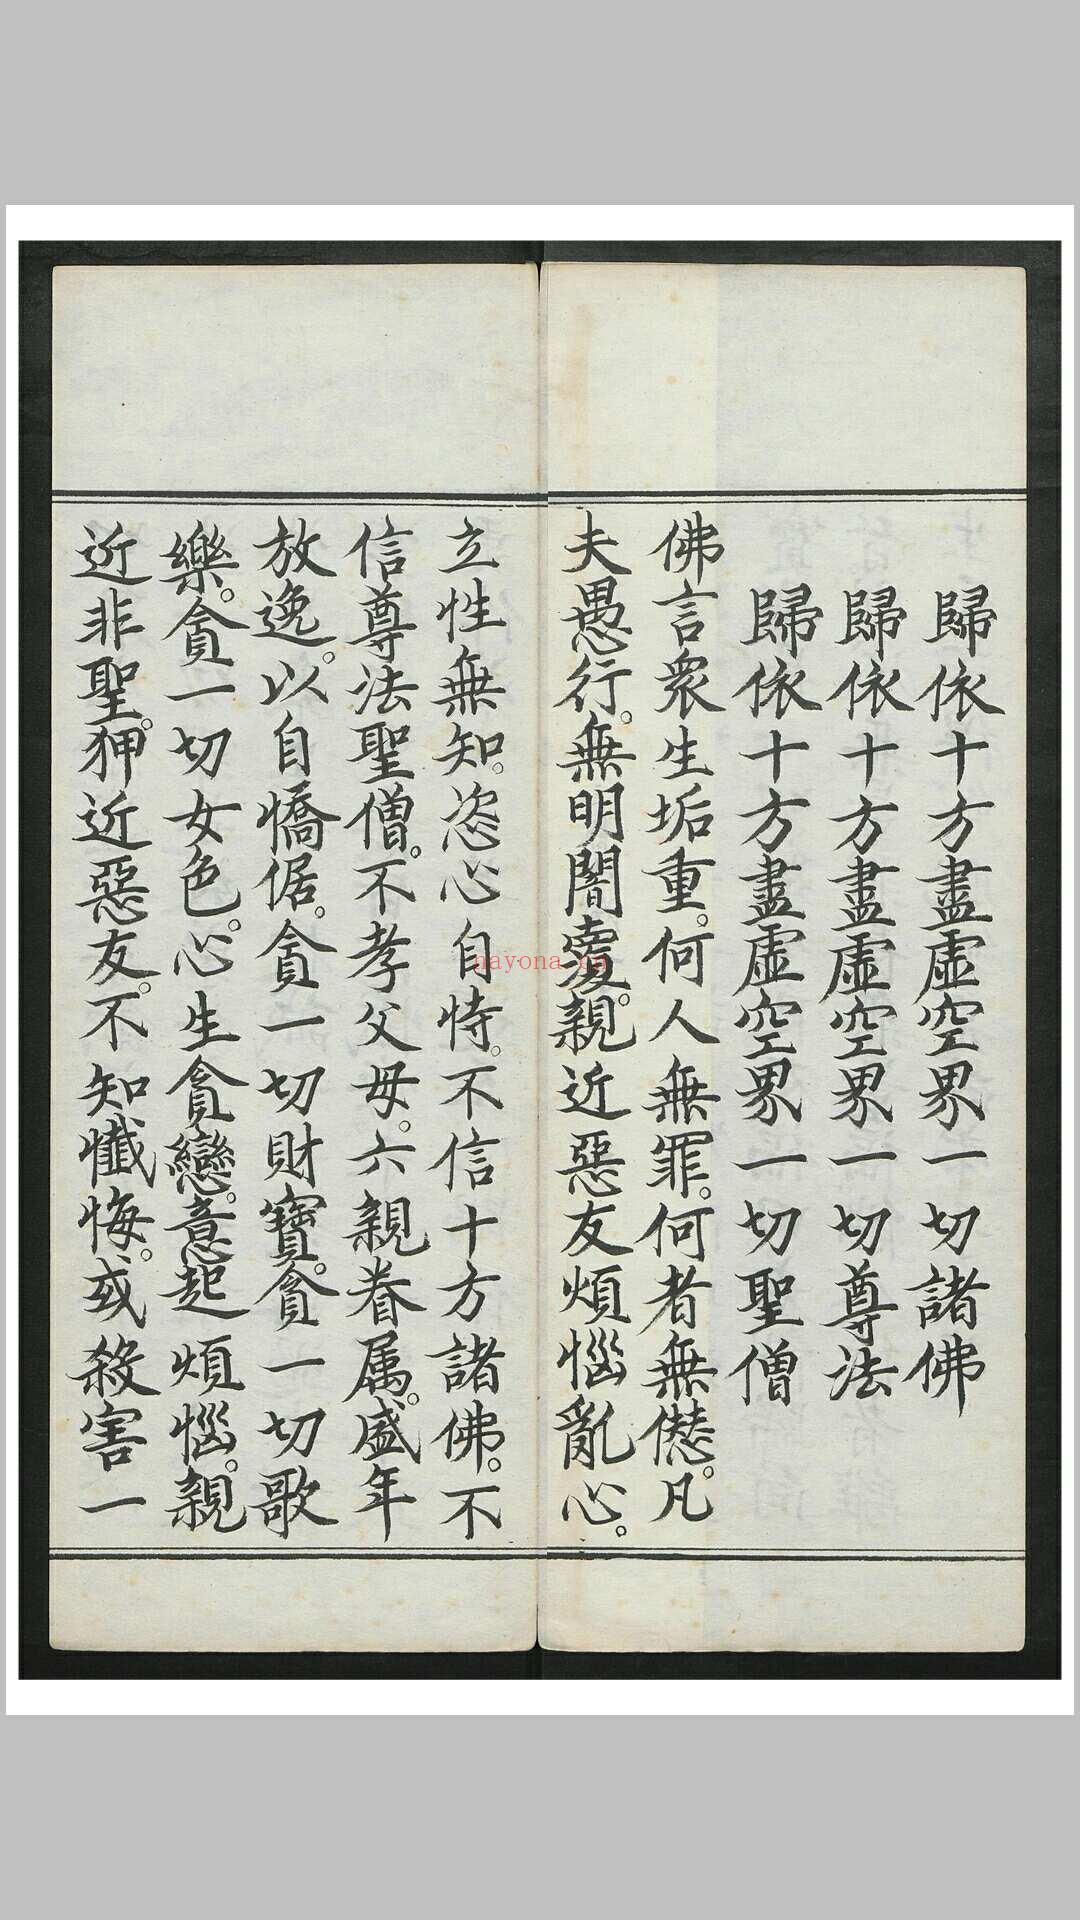 歸依十方盡虛空界一切諸佛
歸依十方盡虛空界一切尊法
歸依十方盡虛空界一切聖僧
佛言衆生垢重。何人無罪。何者無僽。凡
夫愚行。無明闇覆。親近惡友煩惱亂心。
立性無知。恣心自恃。不信十方諸佛。不
信尊法聖僧。不孝父母。六親眷属。盛年
放逸。以自憍倨。貪一切財寶。貪一切歌
樂。貪一切女色。心生貪戀。意起煩惱。親
近非聖。狎近惡友。不知懺悔。或殺害一
nayona.cn